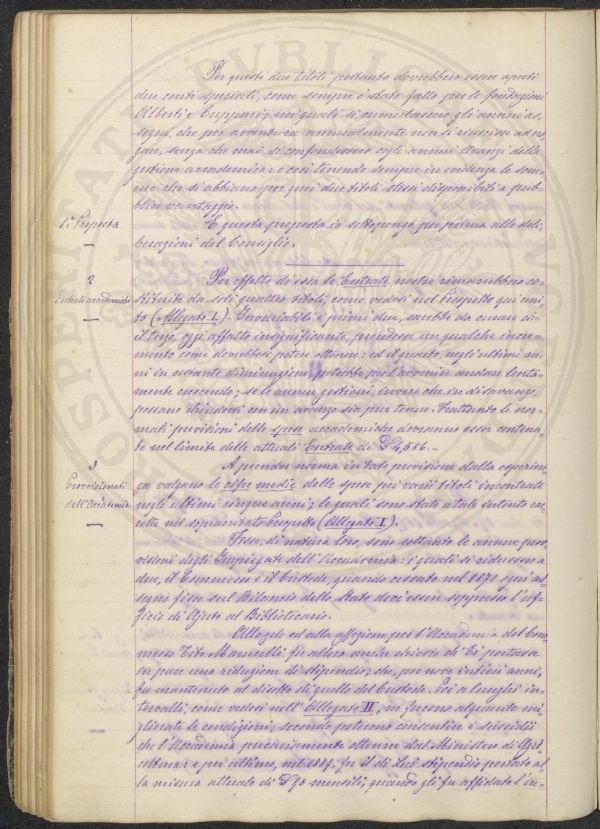 Per questi due titoli pertanto dovrebbero essere aperti
due conti speciali, come sempre è stato fatto per le fondazioni
Alberti e Cuppari; nei quali si cumulassero gli annui as-
segni, che per avventura annualmente non si riuscisse ad ero-
gare, senza che mai si confondessero cogli annui Avanzi della
gestione accademica: e così tenendo sempre in evidenza le som-
me che si abbiano per quei due titoli stessi disponibili a pub-
blico vantaggio.
1a Proposta
E questa proposta io sottopongo per prima alle deli-
berazioni del Consiglio.
2
Entrate accademiche
Per effetto di essa le Entrate nostre rimarrebbero co-
stituite da soli quattro titoli, come vedesi nel Prospetto qui uni-
to (Allegato I). Invariabili i primi due, sarebbe da curare che
il terzo, oggi affatto insignificante, prendesse un qualche incre-
mento come dovrebbesi poter ottenere: ed il quarto, negli ultimi an-
ni in costante diminuzione, potrebbe per l'avvenire andare lenta-
mente crescendo; se le annue gestioni, invece che in disavanzo,
possano chiudersi con un avanzo sia pur tenue. Frattanto le nor-
mali previsioni delle spese accademiche dovranno esser contenu-
te nel limite delle attuali Entrate di L 4,586.–
3
Provvisionati
dell'Accademia
A prender norma in tale previsione dalla esperien-
za valgano le cifre medie delle spese pei varii titoli incontrate
negli ultimi cinque anni; le quali sono state a tale intento rac-
colte nel sopracitato Prospetto (Allegato I).
Fisse, di natura loro, sono soltanto le annue prov-
visioni degli Impiegati dell'Accademia: i quali si ridussero a
due, il Commesso e il Custode, quando cessato nel 1870 ogni as-
segno fisso sul Bilancio dello Stato dovè esser soppresso l'uf-
ficio di Ajuto al Bibliotecario.
Allo zelo ed alla affezione per l'Accademia del Com-
messo Tito Marucelli fu allora anche chiesto di Ei portasse
in pace una riduzione di stipendio; che, per nove interi anni,
fu mantenuto al disotto di quello del Custode. Poi a lunghi in-
tervalli, come vedesi nell'Allegato II, ne furono alquanto mi-
gliorate le condizioni, secondo poterono consentire i sussidii
che l'Accademia precariamente ottenne dal Ministero di Agri-
coltura: e per ultimo, nel 1887, fu il di Lui stipendio portato al-
la misura attuale di L 70 mensili, quando gli fu affidato l'in-